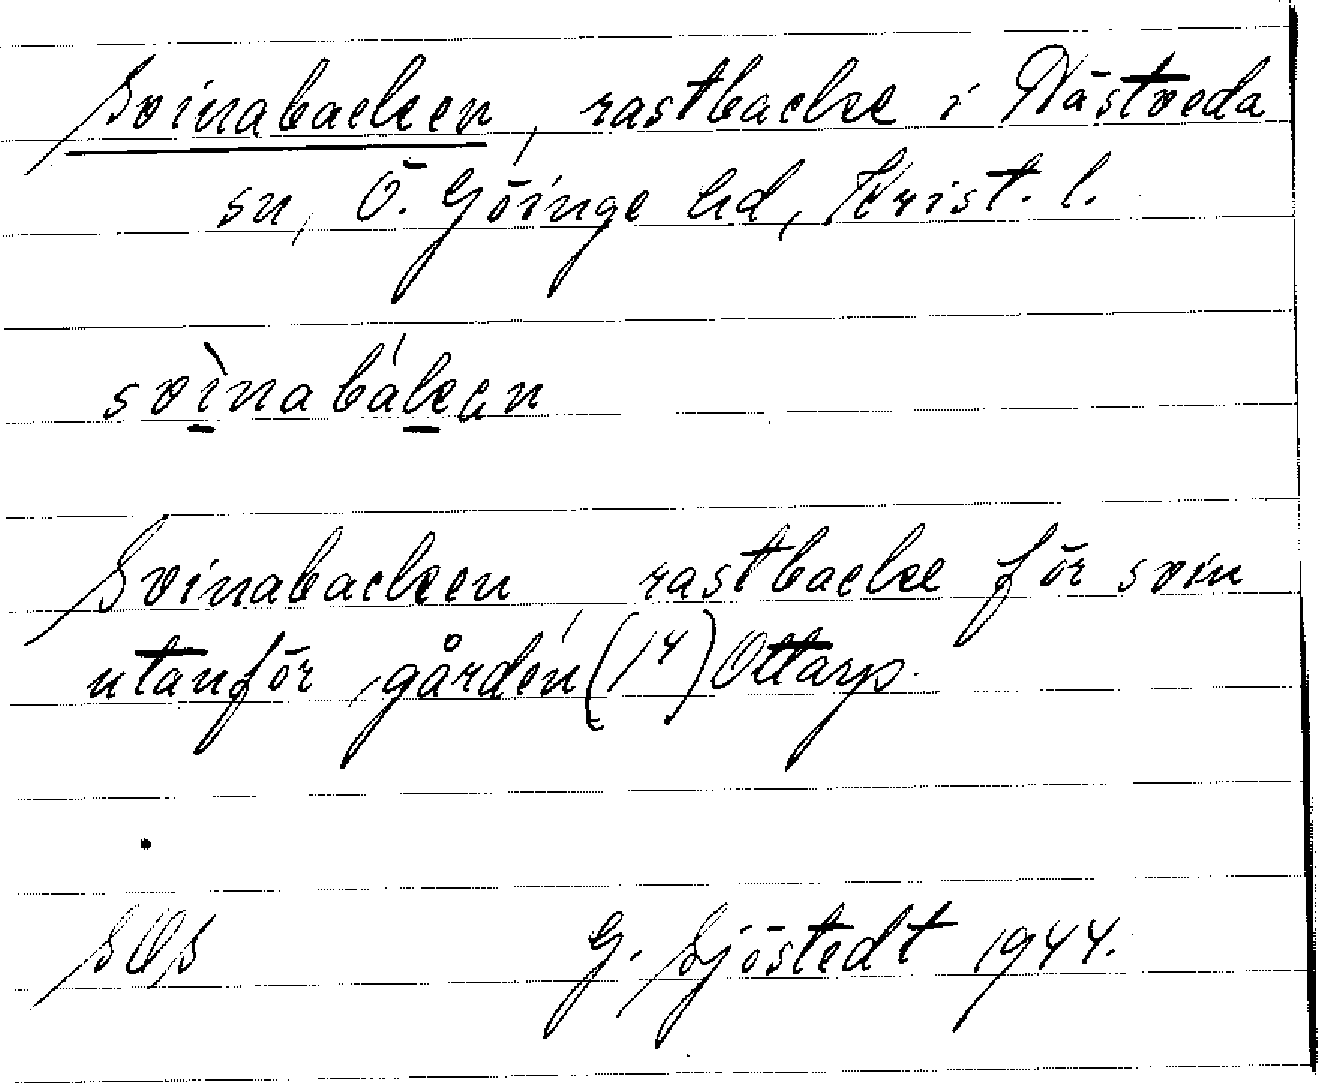 Svinabacken, rastbacke i Västveda
sn, Ö. Göinge hd, Krist. l.
svìnabákan
Svinabacken, rastbacke för svin
utanför gården (14) Ottarp.
G. Sjöstedt 1944.